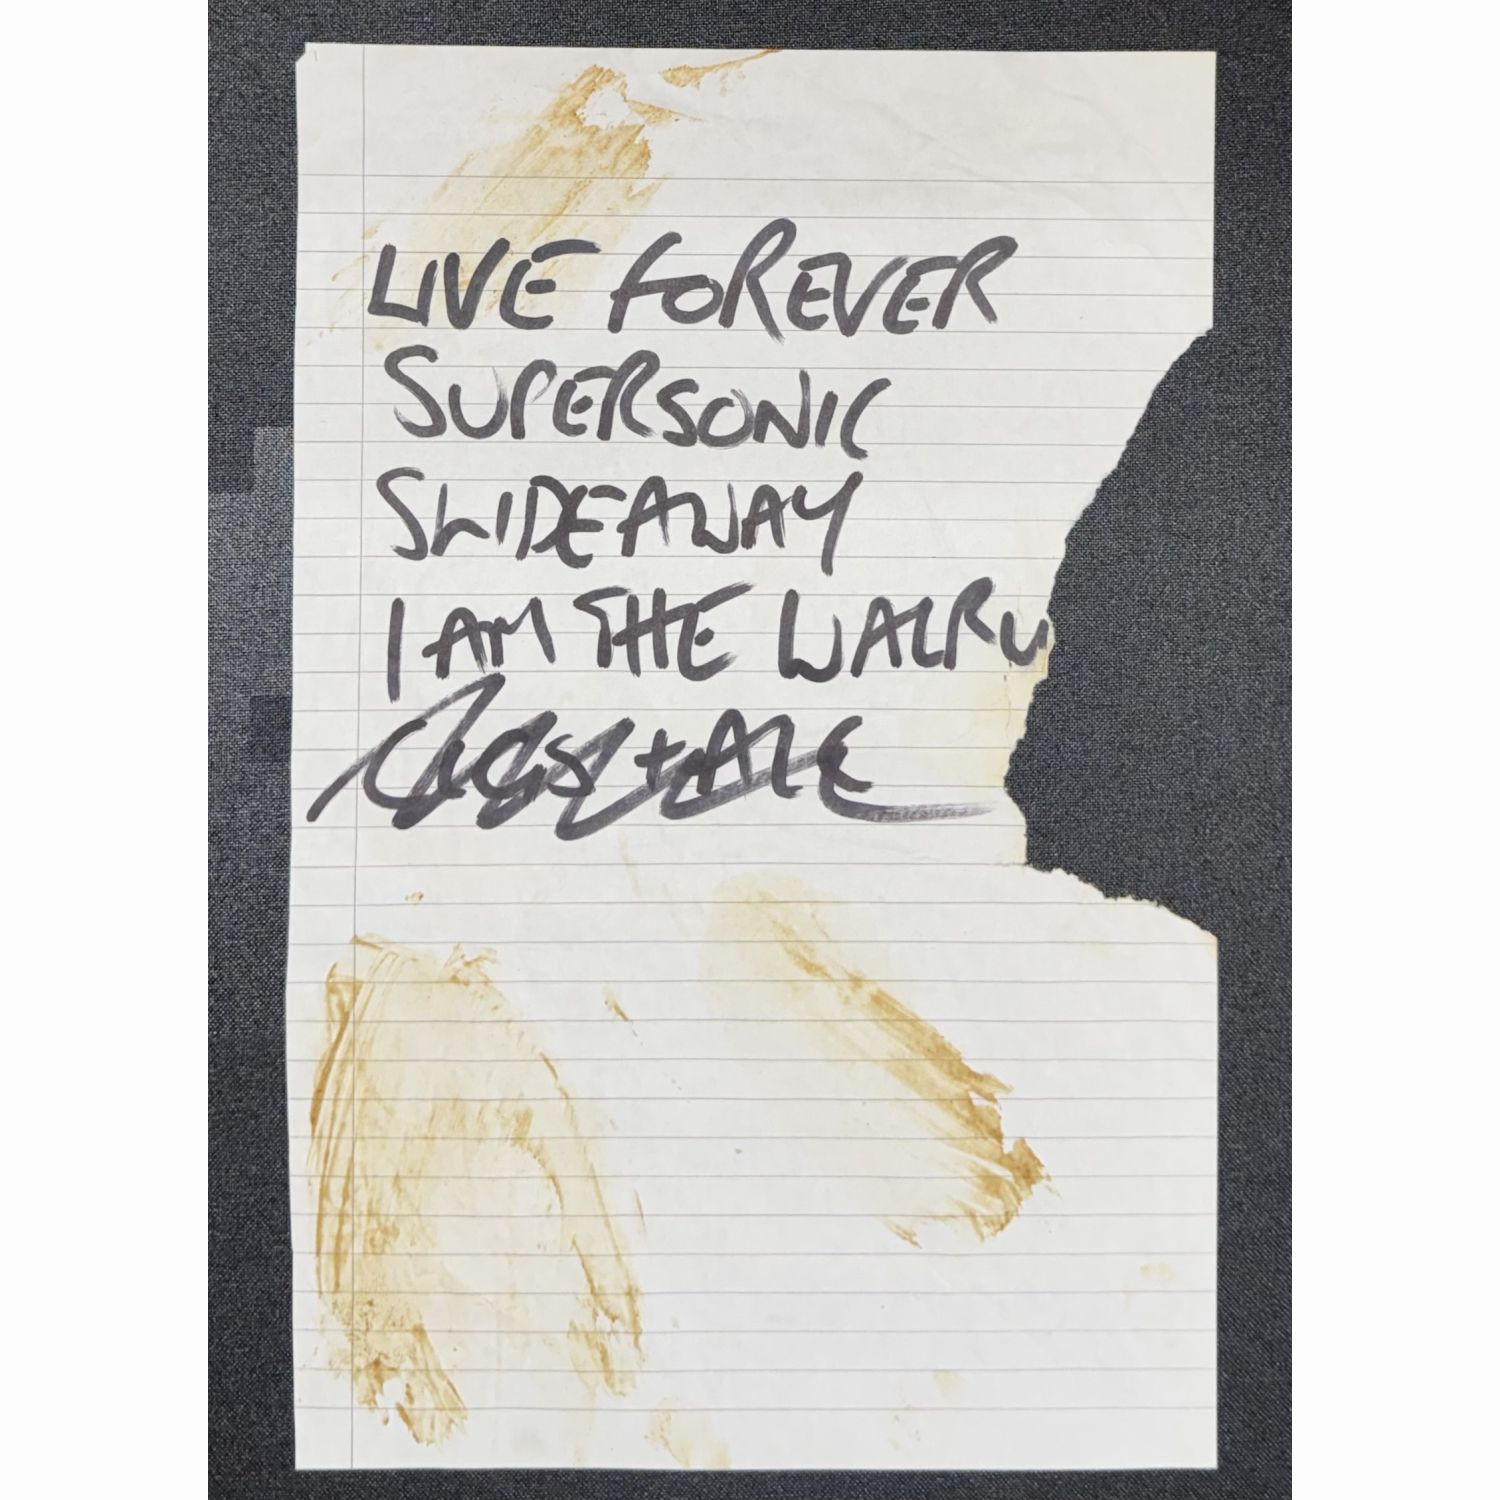 LIVE FOREVER
SUPERSONIC
SLIDEAWAY
I AM THE WALRU
CIGS + ALC